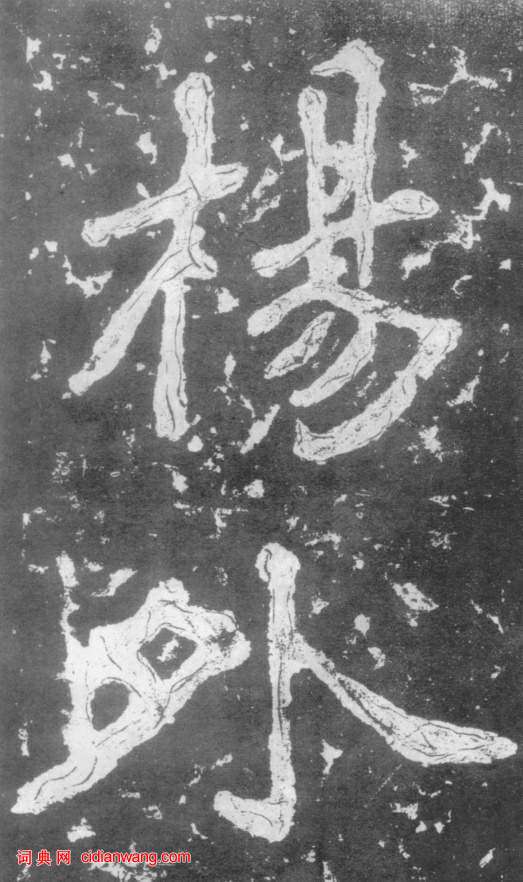 楊
外
词典网 cidianwang.com